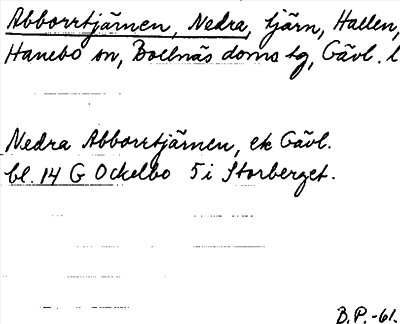 Abborrtjärnen, Nedra, tjärn, Hallen,
Hanebo sn, Bollnäs doms tg, Gävl. l
Nedra Abborrtjärnen, ek Gävl.
bl. 14 G Ockelbo 5 i Storberget.
B.P.-61.